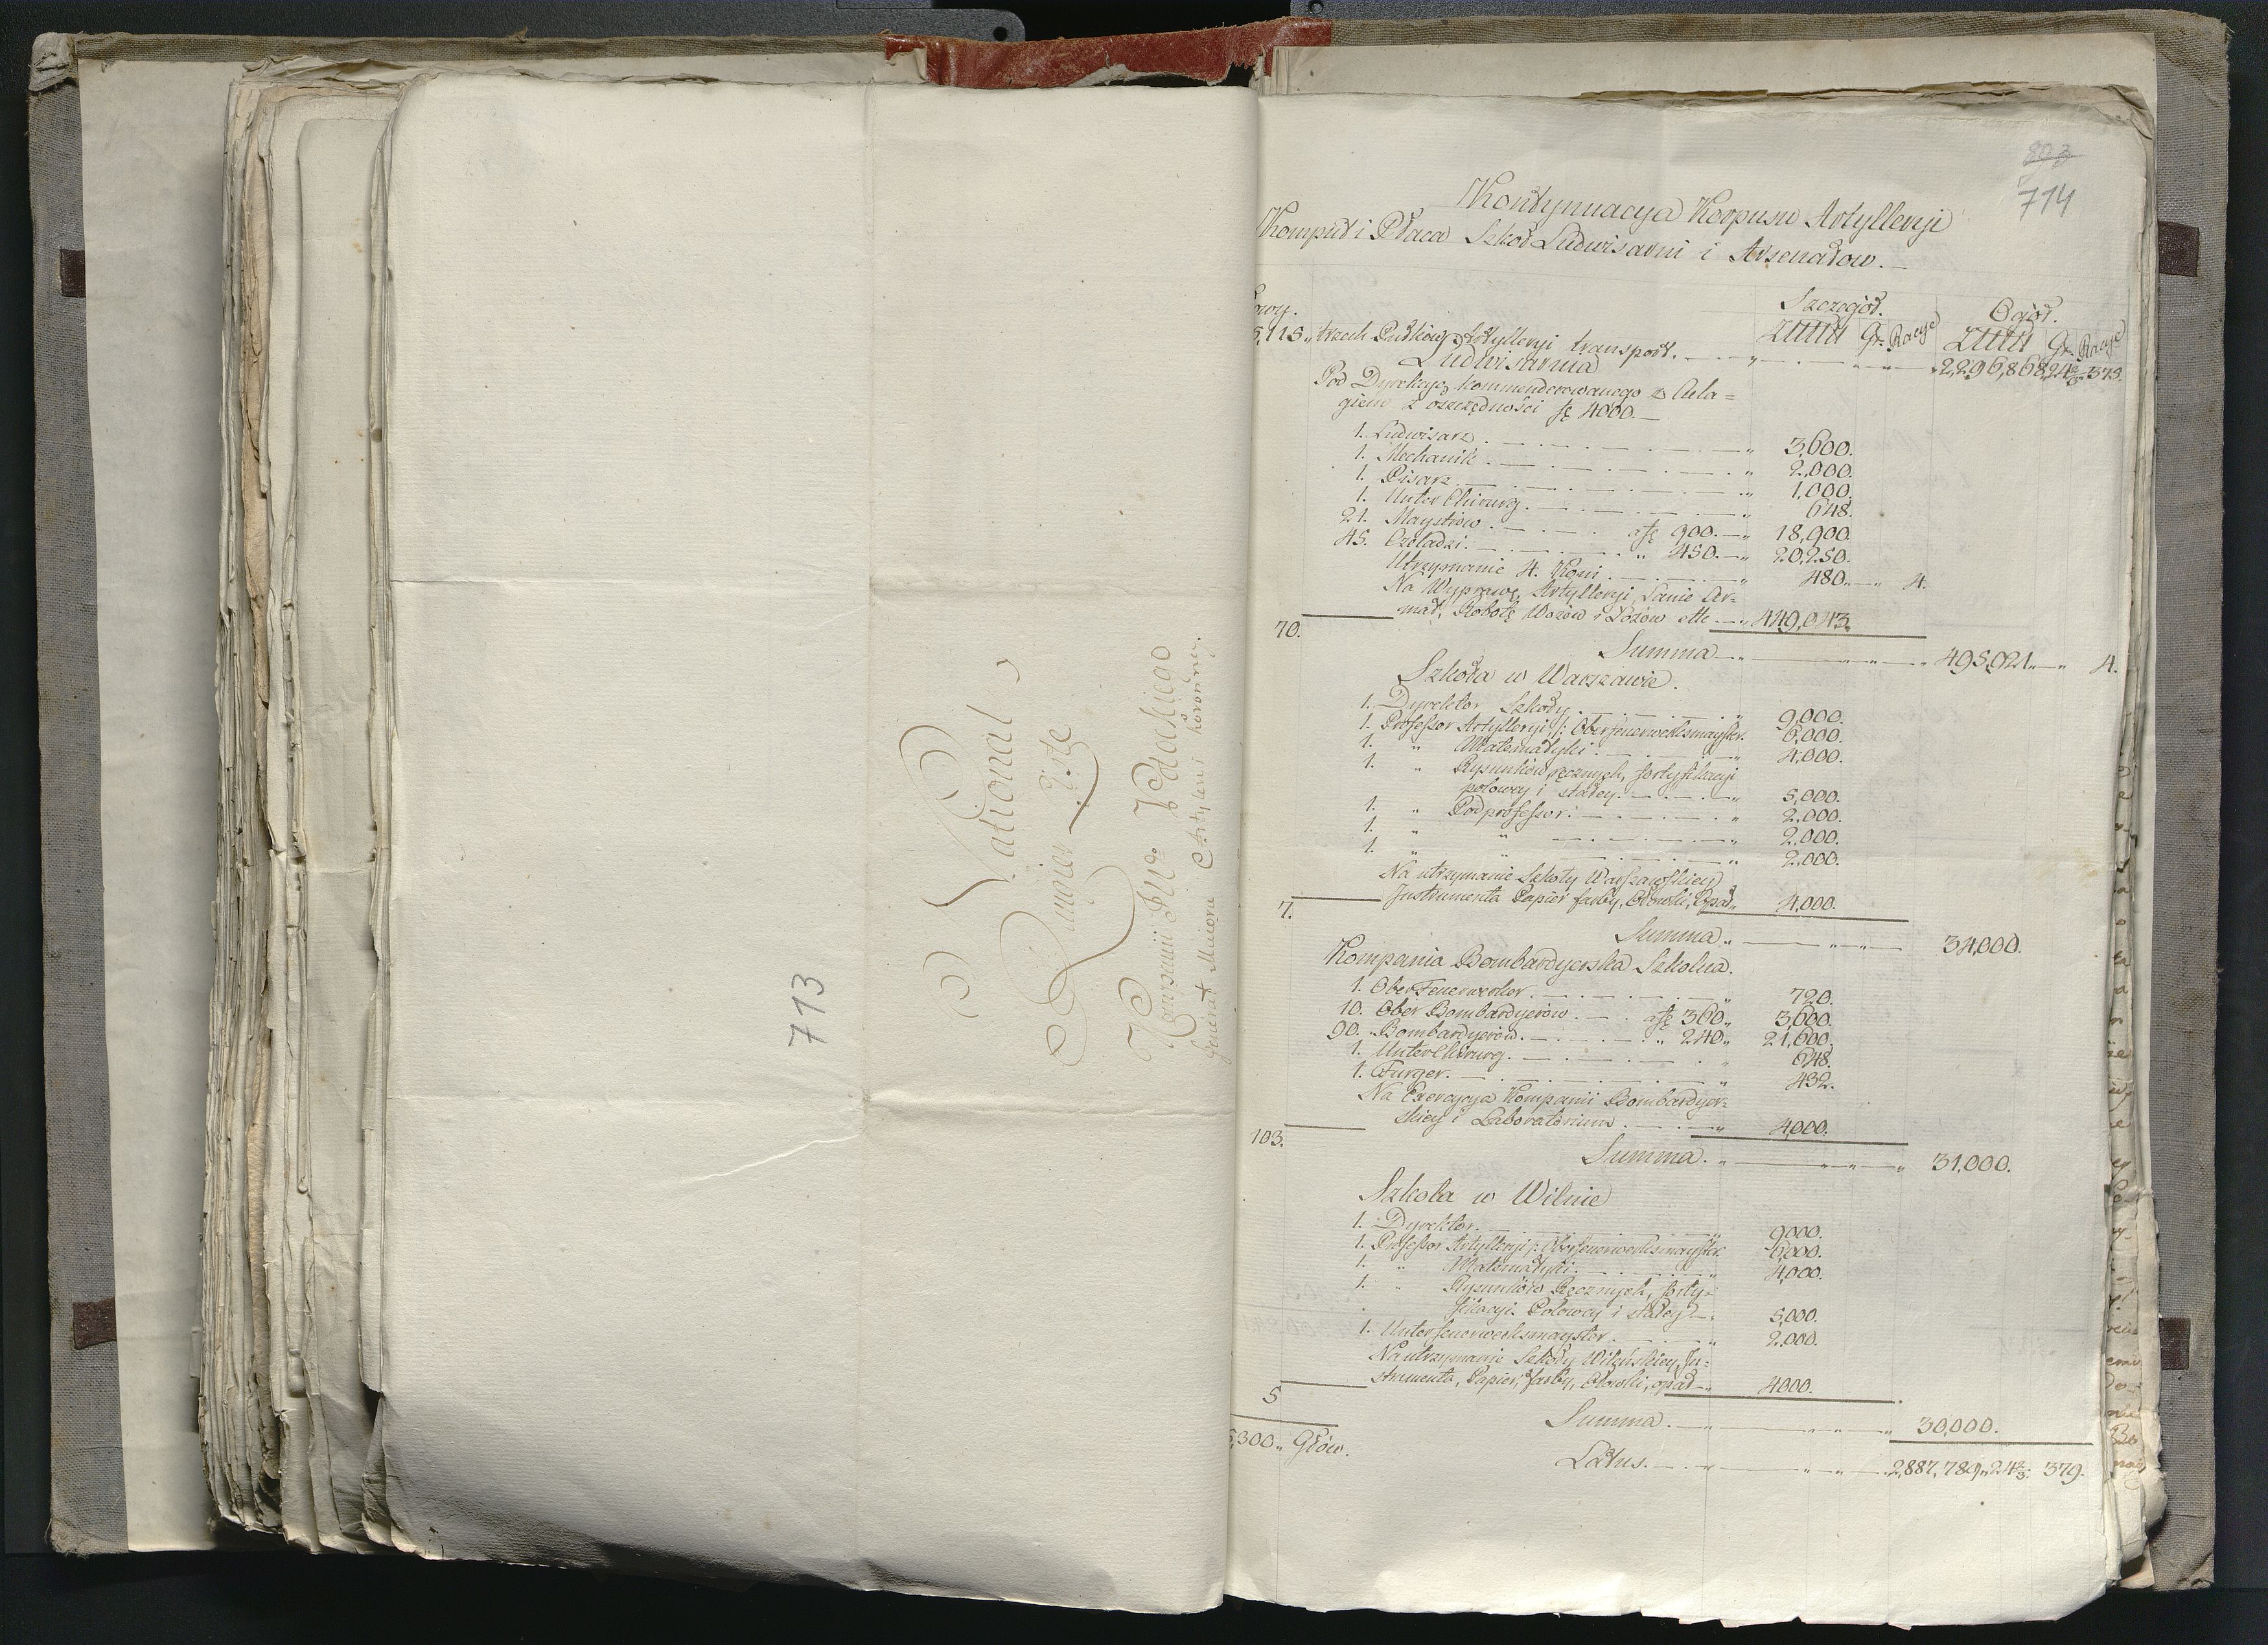 713
National
Rangier Liste
Kompanii JWo.
Generał Maiora Artylerii koronney.
803
714
Kontynuacya Korpusu Artylleryi
Komput i Płaca Szkoł Ludwisarni i Arsenałow.
Szczegół. Ogół.
Złłłł Gr. Racye Złłłł Gr. Racye
5,115 „ trzech Pułków Artylleryi transport. 2,296,868 24 2/3 375.
Ludwisarnia
Pod Dyrekcyą kommenderowanego z
giem z oszczędności fł 4000.
1. Ludwisarz 3,600.
1. Mechanik 2,000.
1. Pisarz 1,000.
1. Unter Chirurg 648.
21. Maystrów a fł 900. 18,900.
45. Czeladzi „ 450. 20,250.
Utrzymanie 4. Koni 480. 4.
Na Wyprawę Artylleryi, Lanie Ar=
mat, Robotę Wozów i Łożów ett 449,043.
70.
Summa 495,921 4.
Szkoła w Warszawie.
1. Dyrektor Szkoły 9,000.
1. Professor Artylleryi /: Oberfeuerwerksmayster 6,000.
1. „ Matematyki 4,000.
1. „ Rysunków ręcznych, fortyfikacyi
polowey i stałey 5,000.
1. „ Podprofessor 2,000.
1. „ „ 2,000.
1. „ „ 2,000.
Na utrzymanie Szkoły Warszawskiey
Instrumenta Papier farby, Ołowki, Opał „ 4,000.
7.
Summa 34,000.
Kompania Bombardyerska Szkolna.
1. Ober Feuerwerker 720.
10. Ober Bombardyerow a fł 360 „ 3,600.
90. Bombardyerów „ 240 „ 21,600.
1. Unter Chirurg 648.
1. Furyer 432.
Na Exercycya Kompanii Bombardyer=
skiey i Laboratorium 4,000.
103.
Summa 31,000.
Szkoła w Wilnie
1. Dyrektor 9000.
1. Professor Artylleryi /: Oberfeuerwerksmayster 6,000.
1. „ Matematyki 4,000.
1. „ Rysunków Ręcznych, forty=
fikacyi Polowey i stałey 5,000.
1. Unterfeuerwerksmayster 2,000.
Na utrzymanie Szkoły Wileńskiey, In=
strumenta, Papier, farby, Ołowki, opał 4000.
5
Summa 30,000.
5,300 „ Głów.
Latus 2,887,789 „ 24 2/3 379.